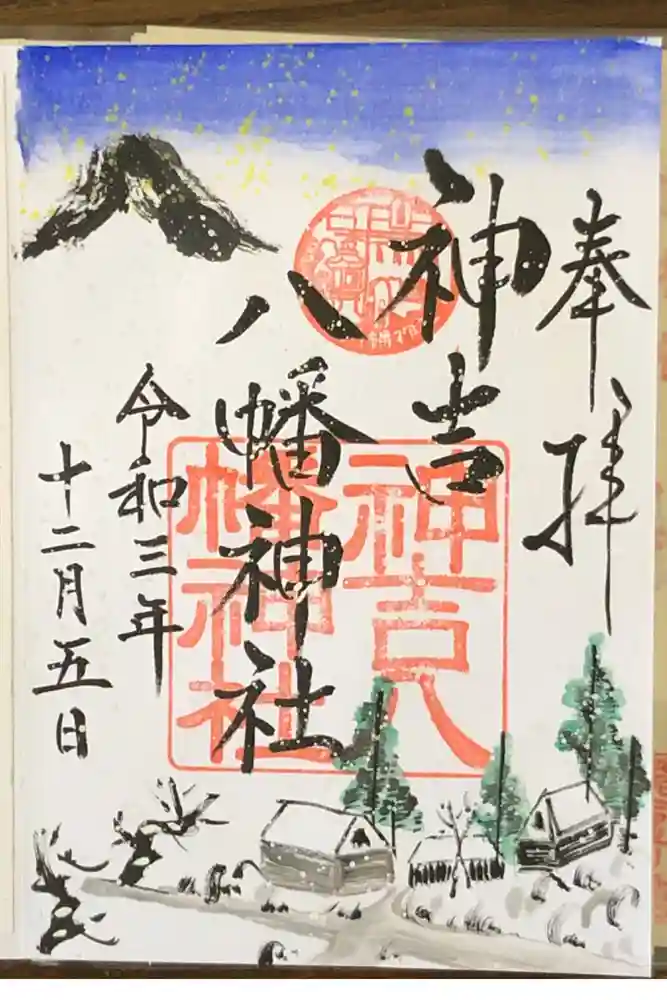 奉拝
神吉
八幡神社
令和三年
十二月五日
神吉八
幡神社